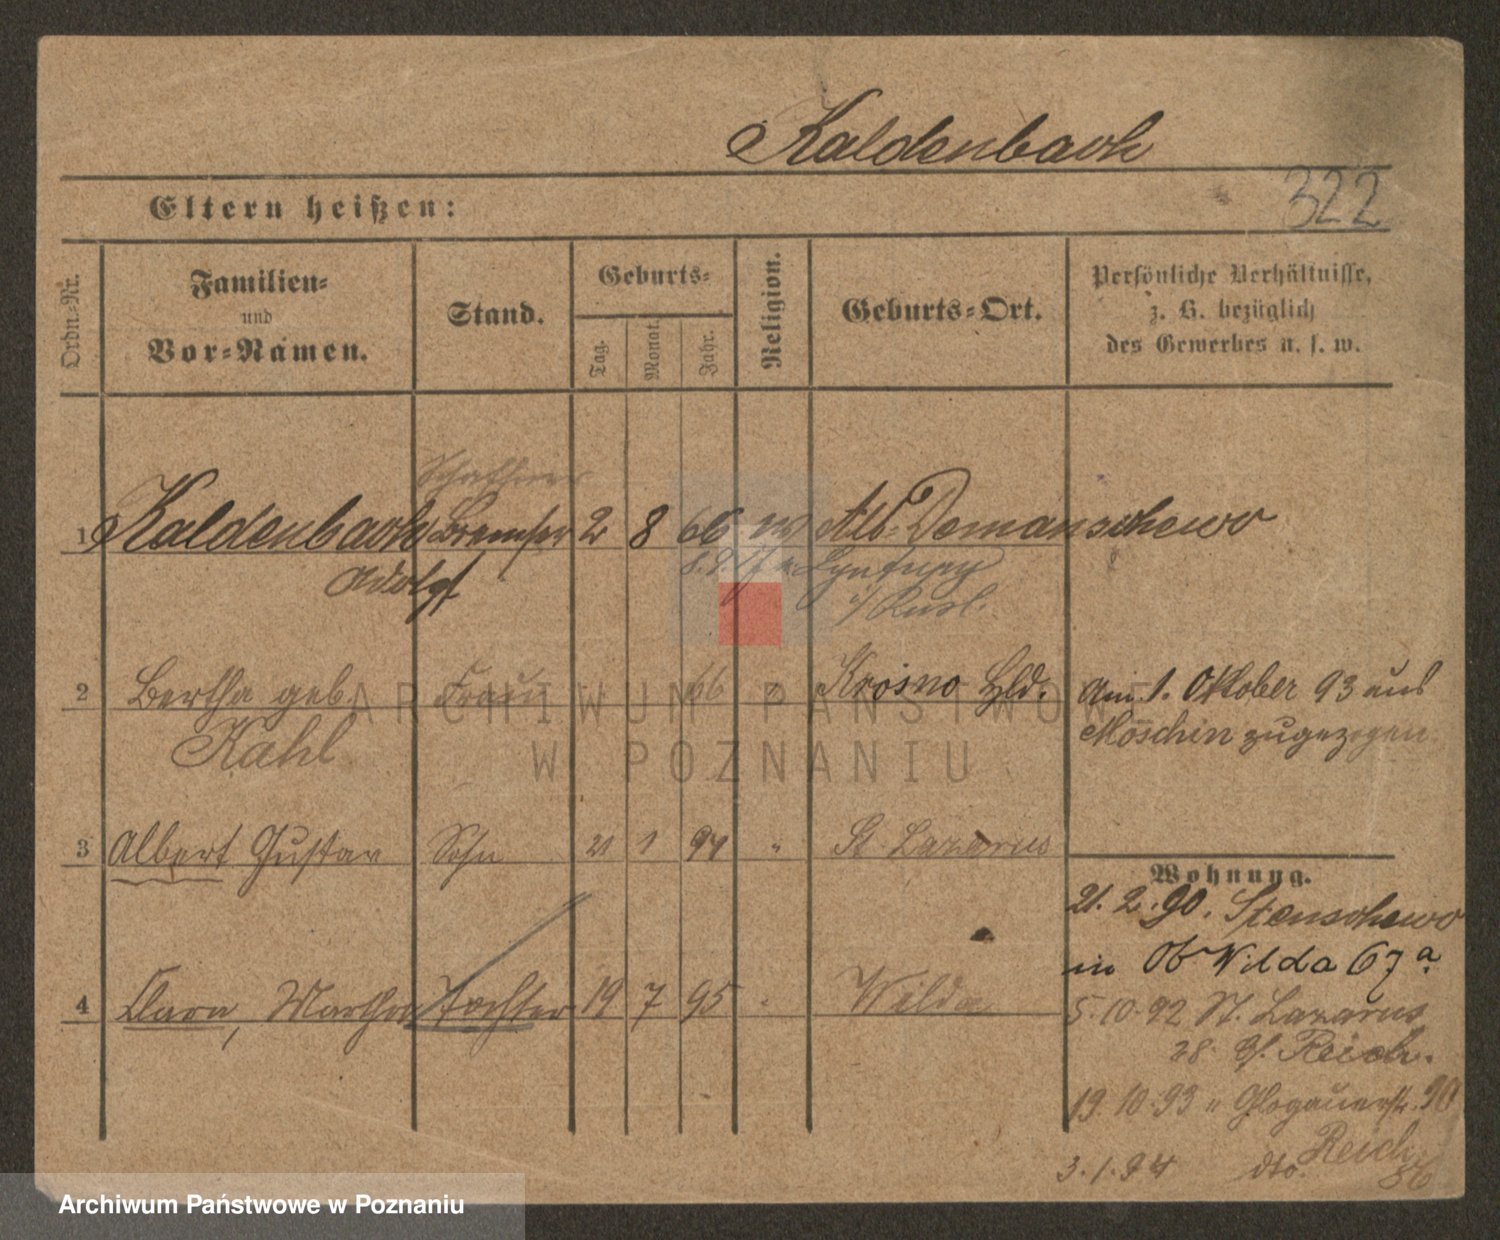 Kaldenbach
322
Eltern heißen:
Ordn.-Nr.
Familien-
und
Vor-Namen.
Stand.
Geburts-
Tag.
Monat.
Jahr.
Religion.
Geburts-Ort.
Persönliche Verhältnisse,
z. B. bezüglich
des Gewerbes u. s. w.
Schaffner
1 Kaldenbach Bremser 2 8 66 Alt Domanschewo
Adolf
2 Bertha geb. Frau 66 " Krosno Hld.
Kahl
Am 1. Oktober 93 aus
Moschin zugezogen.
3 Albert Gustav Sohn 21 1 94 " St Lazarus
Wohnung.
21.2.90. Stenschewo
in Ob Wilda 67a
4 Clara, Martha Tochter 19 7 95 " Wilda
5.10.92 St. Lazarus
28. b/. Reich.
19.10.93 " Glogauerstr. 90
Reich
3.1.94 dto. 86
ARCHIWUM PAŃSTWOWE
W POZNANIU
Archiwum Państwowe w Poznaniu